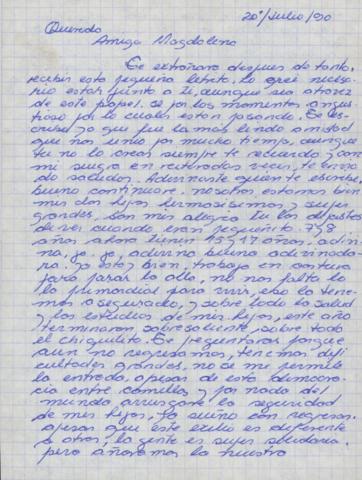 20/Julio/90
Querida
Amiga Magdalena
Te extrañara despues de tanto,
recibir esta pequeña letrita. Lo creí nece
rio estar junto a ti, aunque sea atravez
de este papel. Se por los momentos angus
tioso por lo cuales estan pasando. Te es
cribo ya que fue la más linda amistad
que nos unio por mucho tiempo, aunque
tu no lo creas siempre te recuerdo, con
mi suegra en reiteradas veces, te envia
do saludos. Adivinaste quien te escribe,
bueno continuare. Nosotros estamos bien
mis dos hijos hermosisimos y super
grandes, son mis alegria tu los dejastes
de ver cuando eran pequeñito 7 y 8
años ahora tienen 15 y 17 años. adivi
na, ja. ja. adivina buena adivinado
ra. yo estoy bien trabajo en costura
para parar la olla, no nos falta lo
lo primordial para vivir, eso lo tene
mos asegurado, y sobre todo la salud
y los estudios de mis hijos, este año
terminaron sobresaliente, sobre todo
el chiquilito. Te preguntaras porque
aun no regresamos, tenemos difi
cultades grandes, no se me permite
la entrada, apesar de esta democra
cia entre comillas y por nada del
mundo arriesgare la seguridad
de mis hijos, yo sueño con regresar.
apesar que este exilio es diferente
a otros, la gente es super solidaria.
pero añoramos lo nuestro